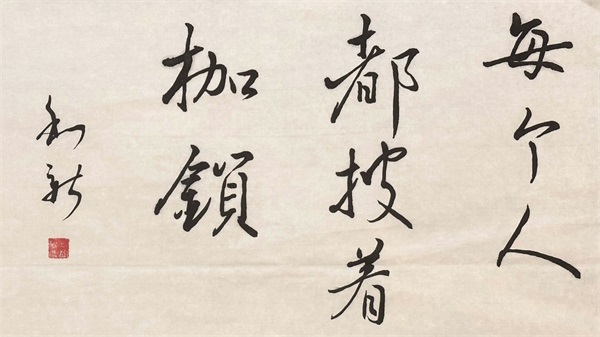 每个人
都披着
枷鎖
利新